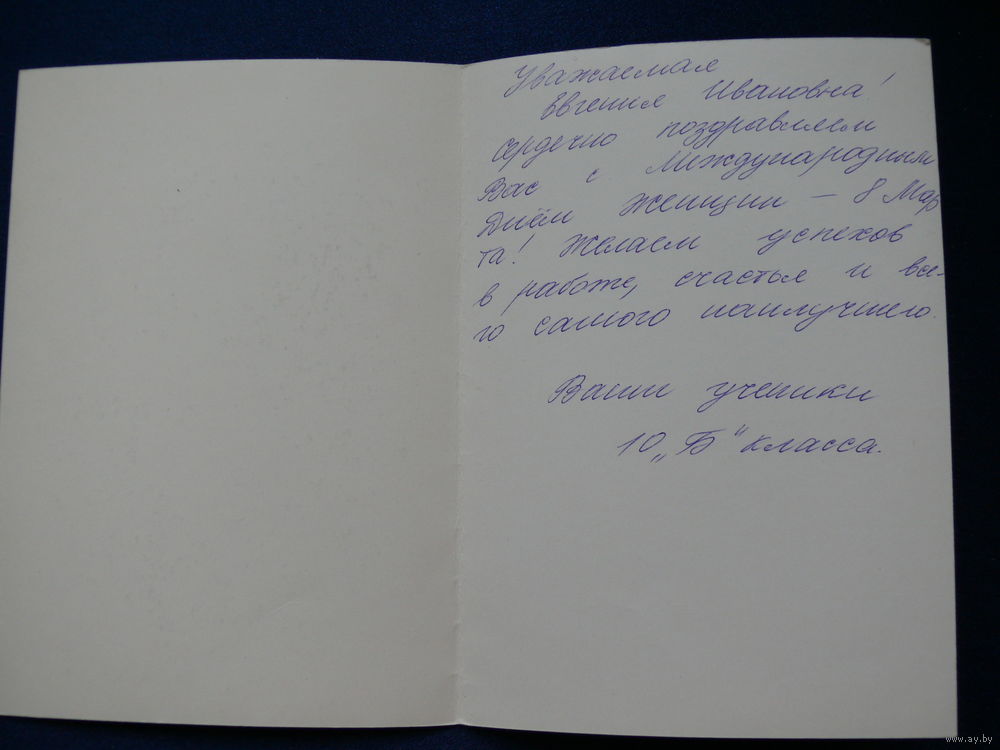 Уважаемая
Евгения Ивановна!
Сердечно поздравляем
Вас с Международным
Днём женщин – 8 Мар
та! Желаем успехов
в работе, счастья и все-
го самого наилучшего.
Ваши ученики
10 „Б“ класса.
www.ay.by